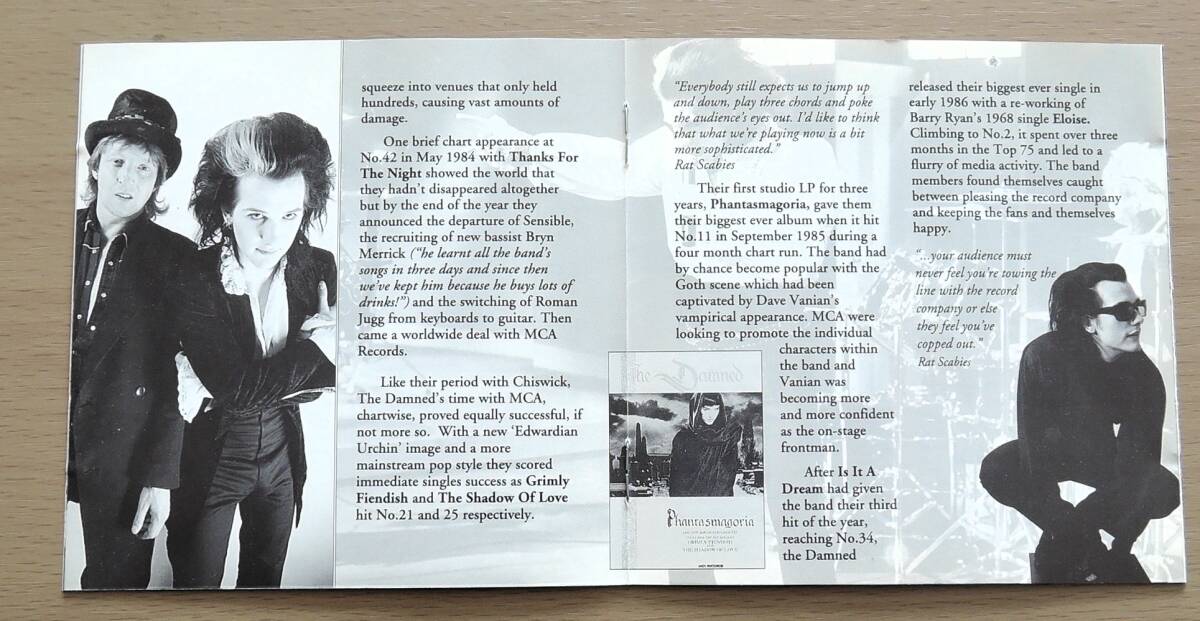 squeeze into venues that only held
hundreds, causing vast amounts of
damage.
One brief chart appearance at
No.42 in May 1984 with Thanks For
The Night showed the world that
they hadn't disappeared altogether
but by the end of the year they
announced the departure of Sensible,
the recruiting of new bassist Bryn
Merrick ("he learnt all the band's
songs in three days and since then
we've kept him because he buys lots of
drinks!") and the switching of Roman
Jugg from keyboards to guitar. Then
came a worldwide deal with MCA
Records.
Like their period with Chiswick,
The Damned's time with MCA,
chartwise, proved equally successful, if
not more so. With a new 'Edwardian
Urchin' image and a more
mainstream pop style they scored
immediate singles success as Grimly
Fiendish and The Shadow Of Love
hit No.21 and 25 respectively.
"Everybody still expects us to jump up
and down, play three chords and poke
the audience's eyes out. I'd like to think
that what we're playing now is a bit
more sophisticated."
Rat Scabies
Their first studio LP for three
years, Phantasmagoria, gave them
their biggest ever album when it hit
No.11 in September 1985 during a
four month chart run. The band had
by chance become popular with the
Goth scene which had been
captivated by Dave Vanian's
vampirical appearance. MCA were
looking to promote the individual
characters within
the band and
Vanian was
becoming more
and more confident
as the on-stage
frontman.
After Is It A
Dream had given
the band their third
hit of the year,
reaching No.34,
the Damned
The Damned
Phantasmagoria
released their biggest ever single in
early 1986 with a re-working of
Barry Ryan's 1968 single Eloise.
Climbing to No.2, it spent over three
months in the Top 75 and led to a
flurry of media activity. The band
members found themselves caught
between pleasing the record company
and keeping the fans and themselves
happy.
"...your audience must
never feel you're towing the
line with the record
company or else
they feel you've
copped out."
Rat Scabies